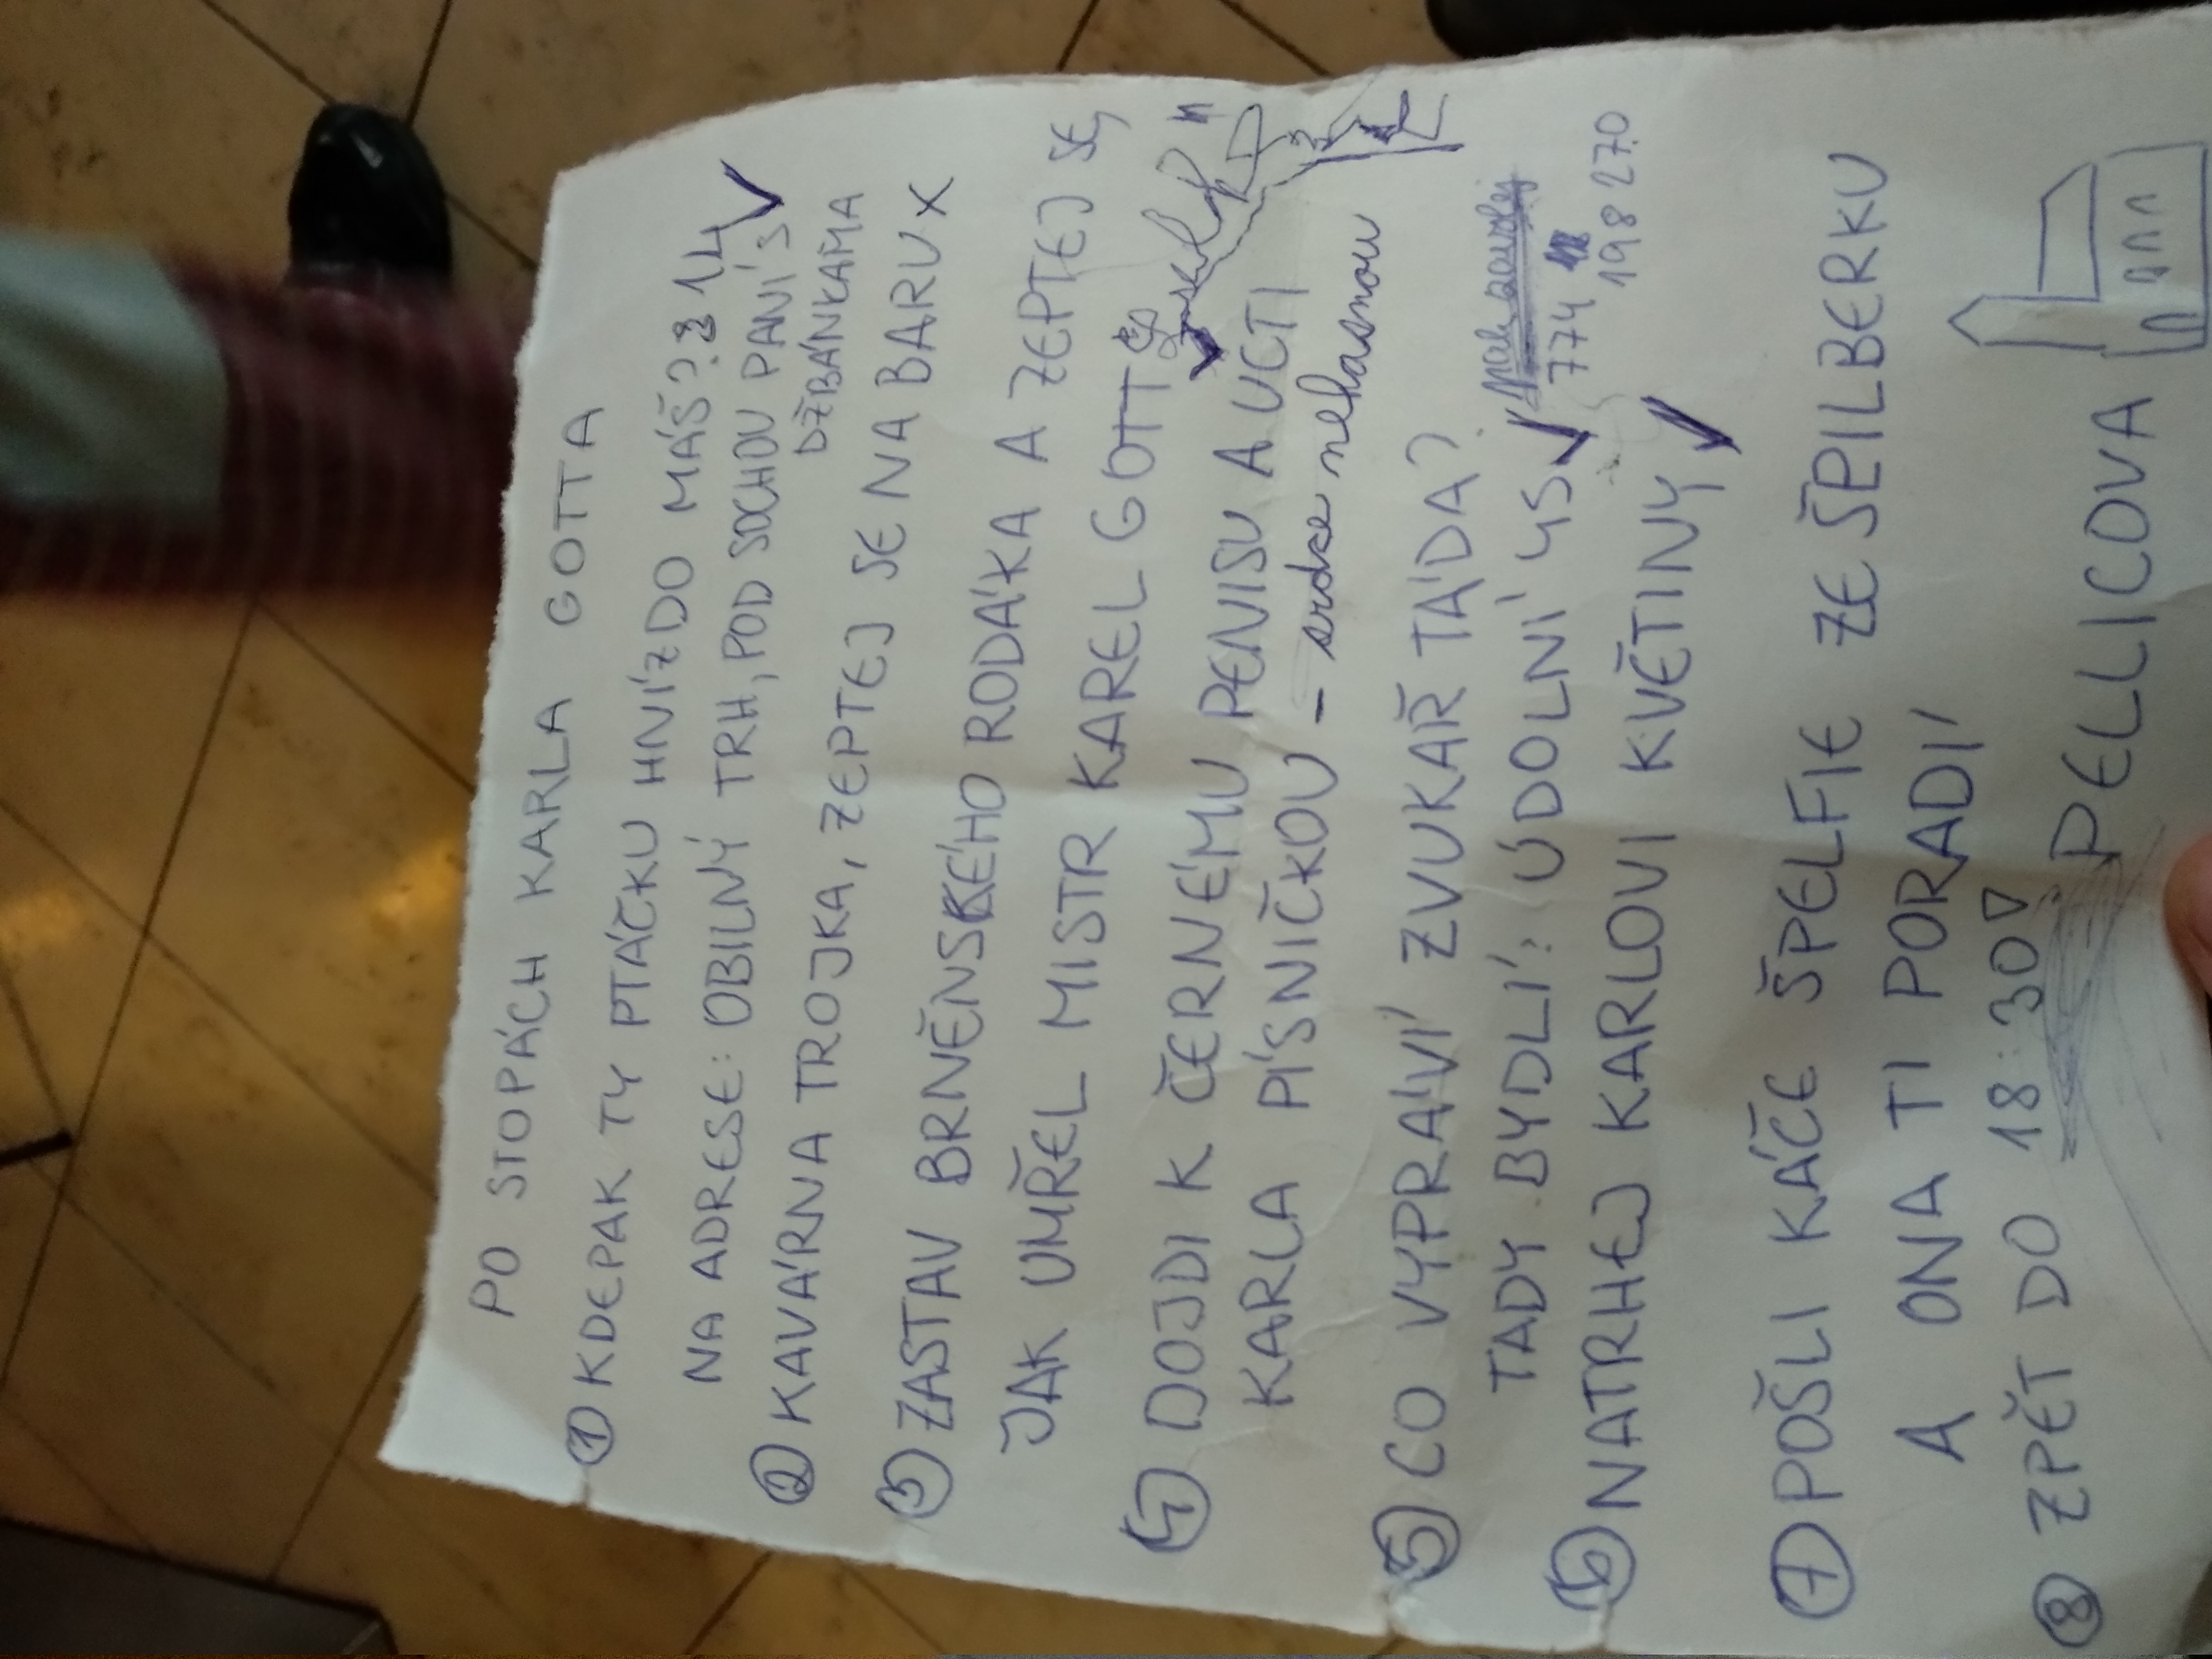 PO STOPÁCH KARLA GOTTA
① KDEPAK TY PTÁČKU HNÍZDO MÁŠ? 14 ✓
NA ADRESE: OBILNÝ TRH, POD SOCHOU PANÍ S
DŽBÁNKAMA
② KAVÁRNA TROJKA, ZEPTEJ SE NA BARU X
③ ZASTAV BRNĚNSKÉHO RODÁKA A ZEPTEJ SE,
JAK UMŘEL MISTR KAREL GOTT
④ DOJDI K ČERNÉMU PENISU A UCTI ✓
KARLA PÍSNIČKOU – srdce nehasnou
⑤ CO VYPRAVÍ ZVUKAŘ TÁDA?
TADY BYDLÍ: ÚDOLNÍ 45 ✓
774
198 270
⑥ NATRHEJ KARLOVI KVĚTINY ✓
⑦ POŠLI KÁČE ŠPELFIE ZE ŠPILBERKU
A ONA TI PORADÍ
⑧ ZPĚT DO 18:30
PELLICOVA